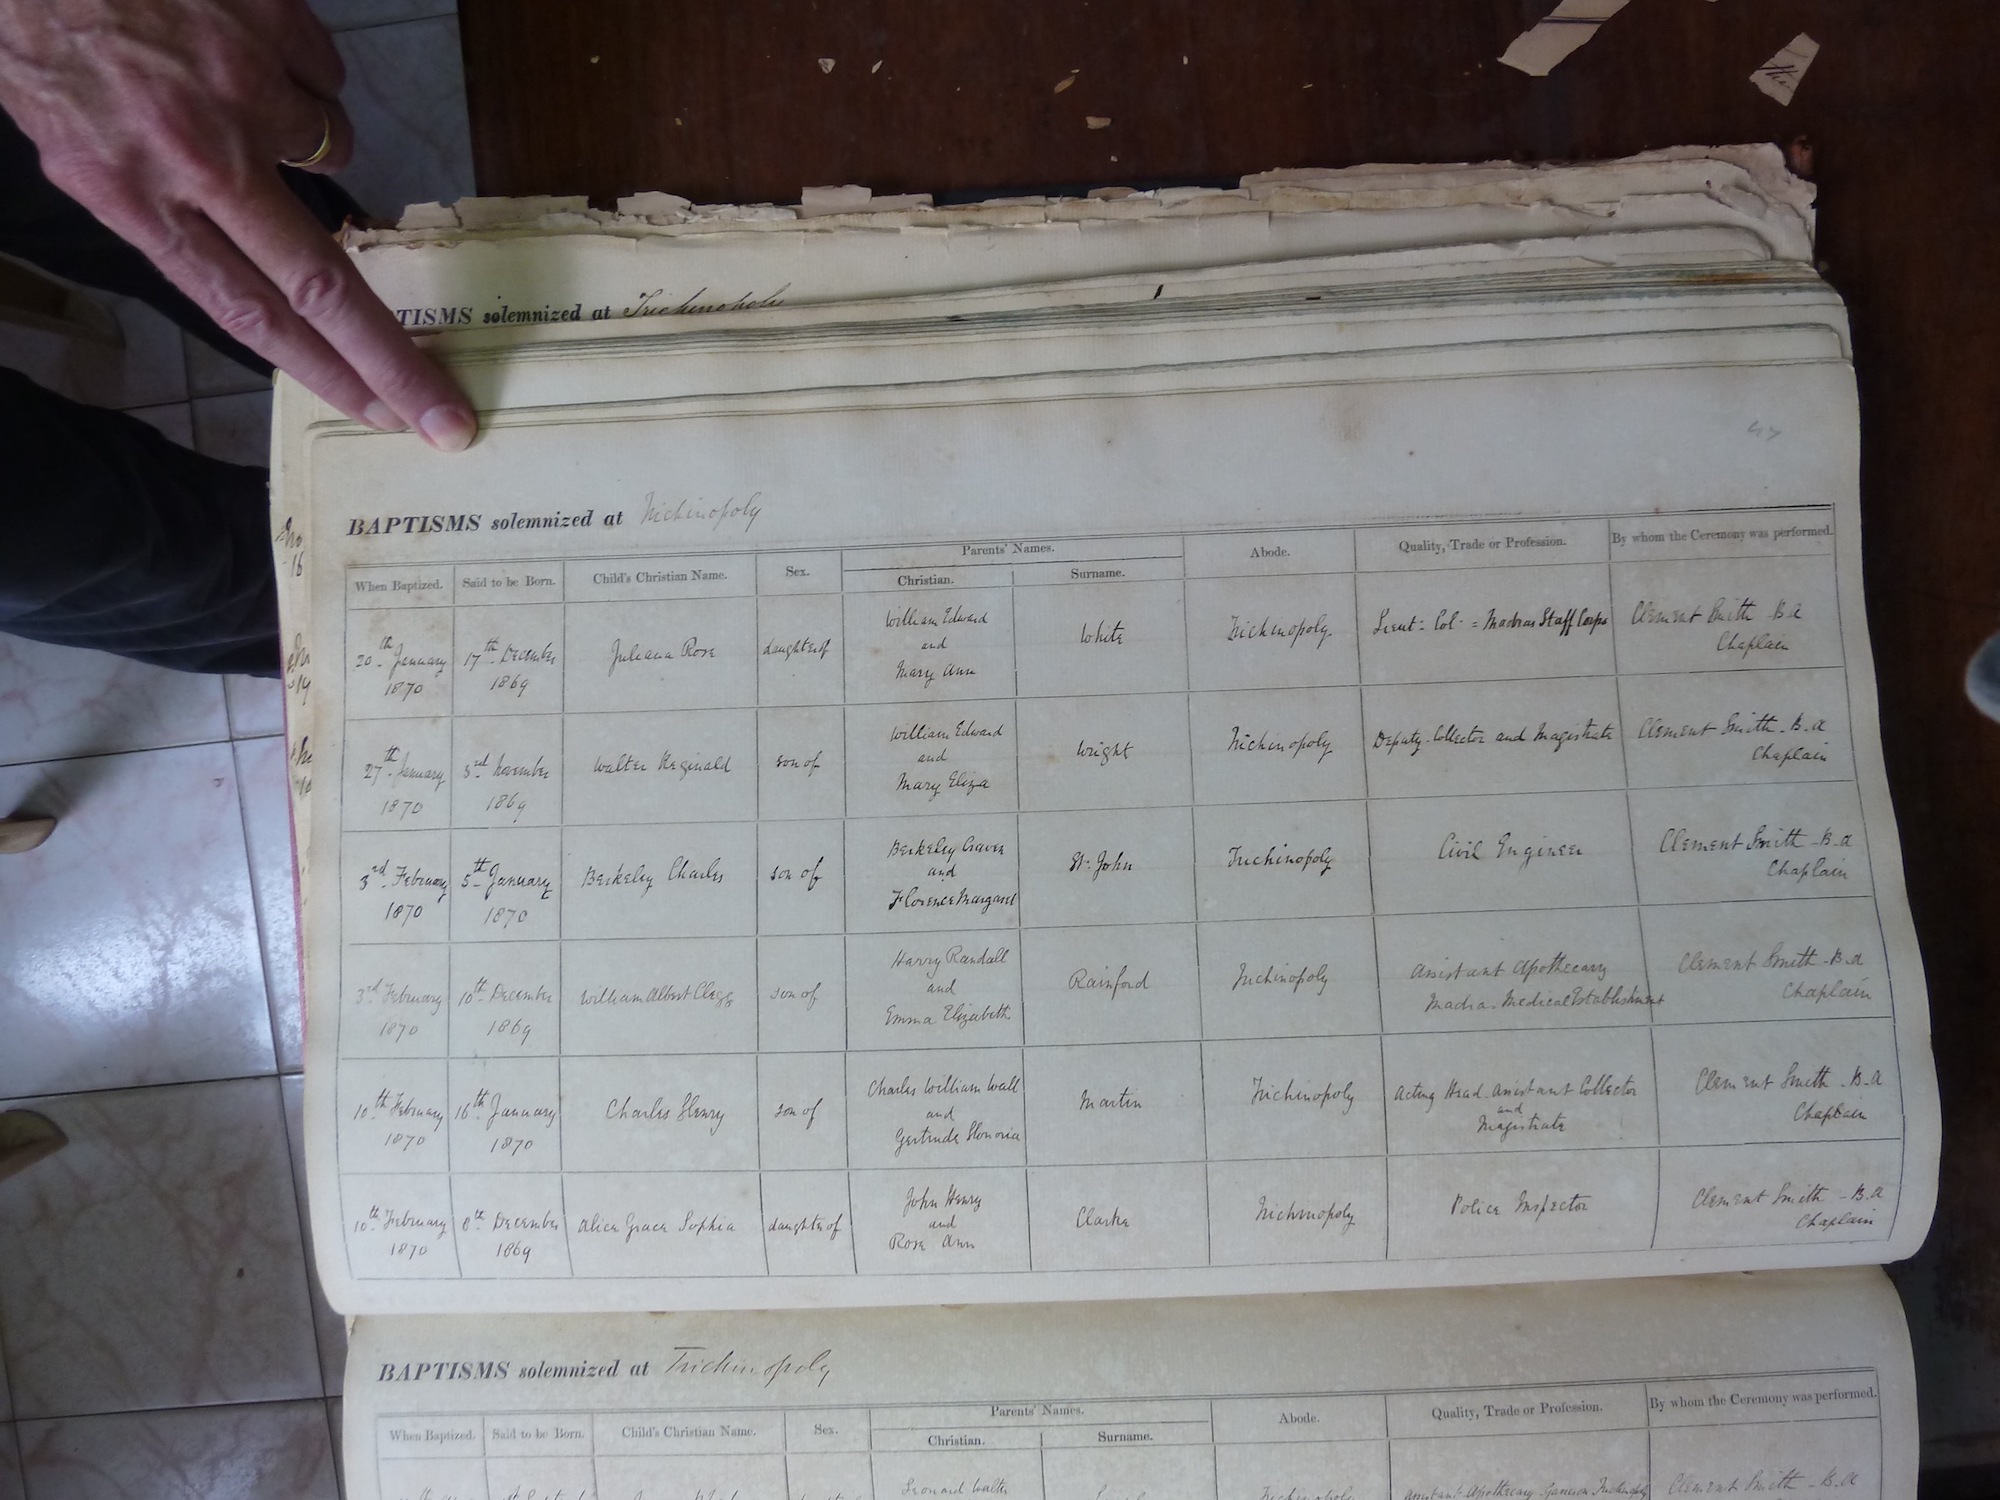 TISMS solemnized at Trichinopoly
47
BAPTISMS solemnized at Trichinopoly
When Baptized. Said to be Born. Child's Christian Name. Sex. Parents' Names. Abode. Quality, Trade or Profession. By whom the Ceremony was performed.
Christian. Surname.
20th January 1870 17th December 1869 Juliana Rose daughter of William Edward and Mary Ann White Trichinopoly. Lieut: Col: = Madras Staff Corps Clement Smith B.A Chaplain
27th January 1870 3rd November 1869 Walter Reginald son of William Edward and Mary Eliza Wright Trichinopoly Deputy Collector and Magistrate Clement Smith B.A Chaplain
3rd February 1870 5th January 1870 Berkeley Charles son of Berkeley Craven and Florence Margaret St: John Trichinopoly Civil Engineer Clement Smith B.A Chaplain
3rd February 1870 10th December 1869 William Albert Clegg son of Harry Randall and Emma Elizabeth Rainford Trichinopoly Assistant Apothecary Madras Medical Establishment Clement Smith B.A Chaplain
10th February 1870 16th January 1870 Charles Henry son of Charles William Wall and Gertrude Honoria Martin Trichinopoly Acting Head Assistant Collector and Magistrate Clement Smith B.A Chaplain
10th February 1870 8th December 1869 Alice Grace Sophia daughter of John Henry and Rose Ann Clarke Trichinopoly Police Inspector Clement Smith B.A Chaplain
BAPTISMS solemnized at Trichinopoly
When Baptized. Said to be Born. Child's Christian Name. Sex. Parents' Names. Abode. Quality, Trade or Profession. By whom the Ceremony was performed.
Christian. Surname.
Leonard Walter Trichinopoly Assistant Apothecary Garrison Trichinopoly Clement Smith B.A
the